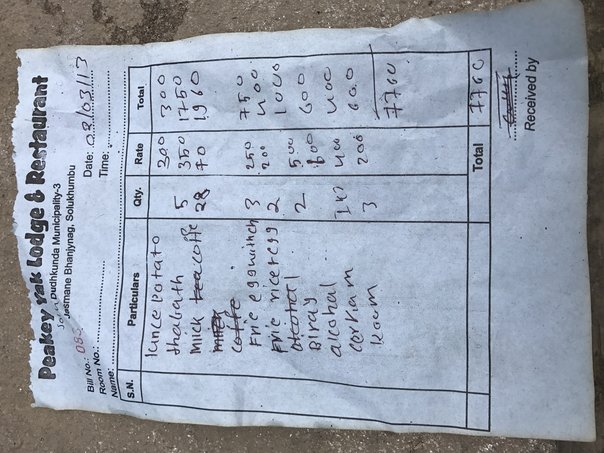 Peakey Yak Lodge & Restaurant
Dudhkunda Municipality-3
Jasmane Bhanjynag, Solukhumbu
Bill No.: 083
Date: 02/03/13
Room No.:
Time:
Name:
S.N. Particulars Qty. Rate Total
lunce potato 300 300
thabath 5 350 1750
Milk coffe 28 70 1960
Frie egg with ch 3 250 750
Frie rice + egg 2 200 400
500 1000
Biray 2 600
alcohal 400 400
Room 3 200 600
7760
Total 7760
Received by